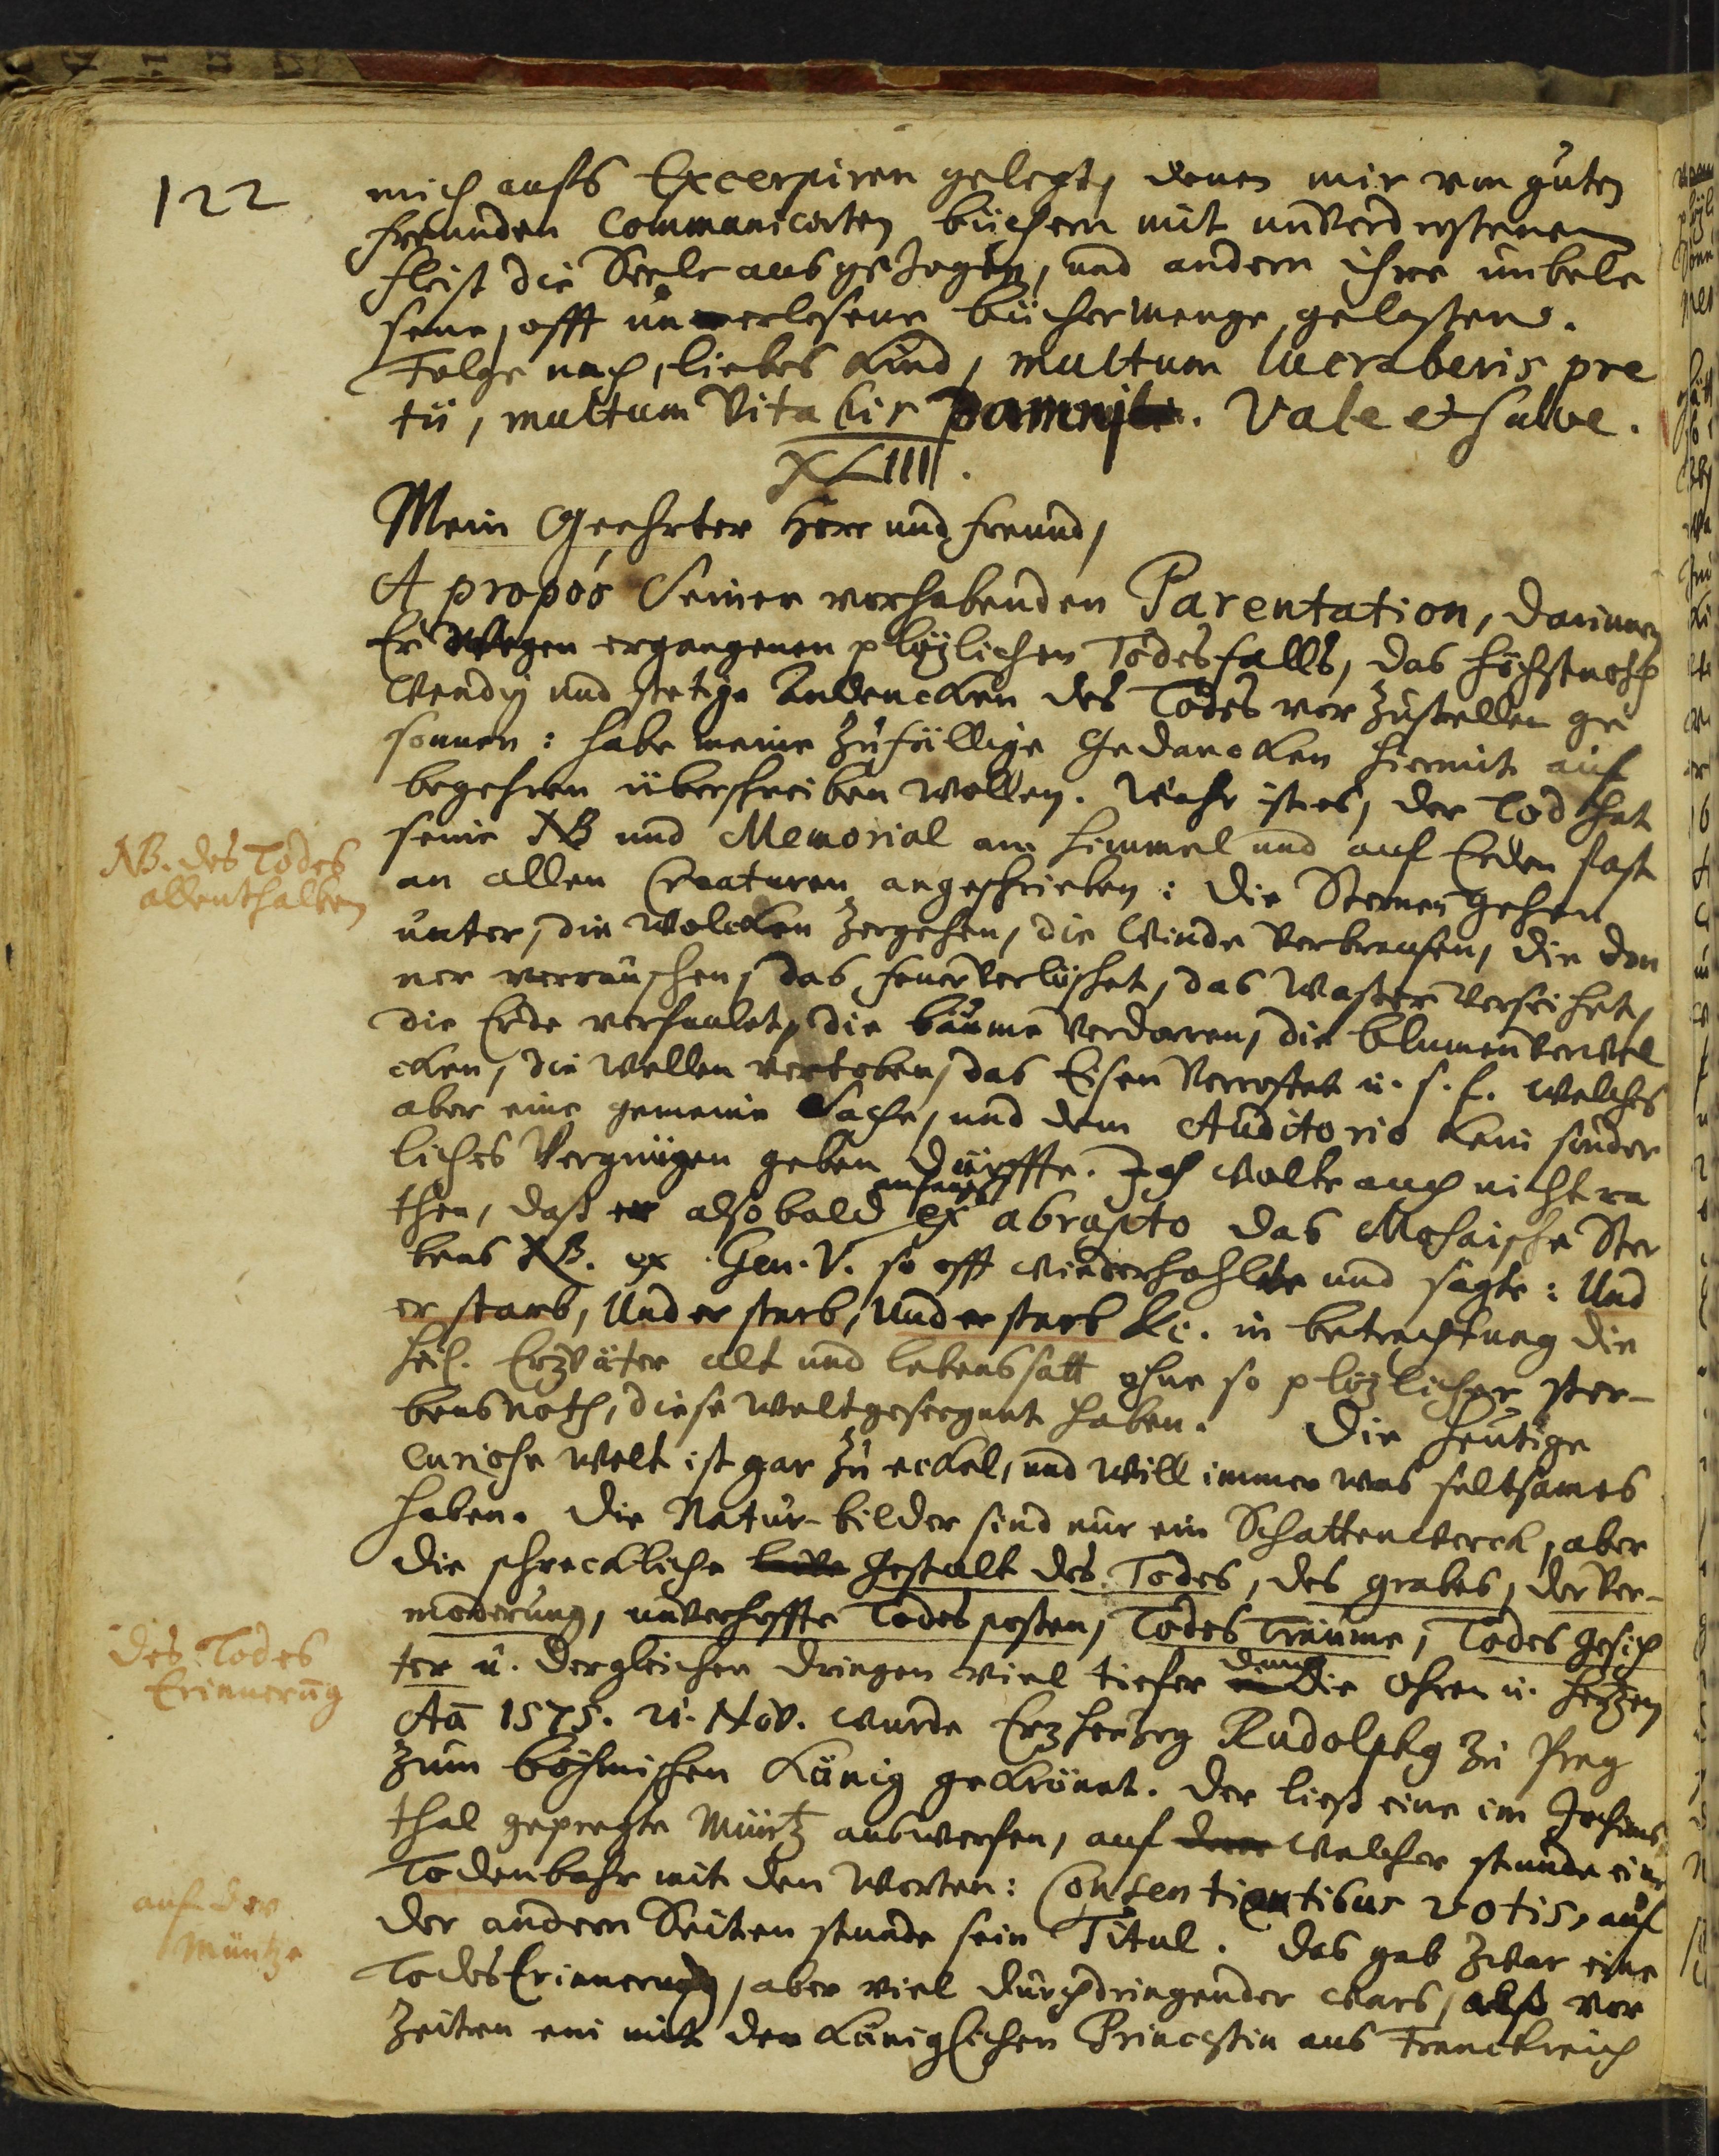 122
mich aufs Excerpiren gelegt, denen mir von guten
freunden Communicirten büchern mit unverdrossenem
fleiß die Seele ausgezogen, und andern ihre unbele
sene, offt unerlesene büchermenge gelassen.
Folge nach, liebes Kind, multum lucraberis pre
tii, multum vitabis damni. Vale et salve.
XLIIII.
Mein Geehrter Herr und freund,
A propos seiner vorhabenden Parentation, darinnen
Er wegen ergangenen plözlichen Todesfalls, das höchstnoth
wendig und stetige Andencken des Todes vor zustellen ge
sonnen: habe meine zufällige Gedancken hiermit auf
begehren überschreiben wollen. Wahr ist es, der Tod hat
seine NB und Memorial am Himmel und auf Erden fast
an allen Creaturen angeschrieben: die Sternen gehen
unter, die Wolcken zergehen, die Winde verbrausen, die don
ner verrauschen, das feuer verlöschet, das Wasser verseihet,
die Erde verfaulet, die bäume verdorren, die blumen verwel
cken, die Wellen vertoben, das Eisen verrostet u. s. f. welches
aber eine gemeine Sache, und dem Auditorio kein sonder
liches Vergnügen geben dürffte. Ich wolte auch nicht ra
then, daß er alsobald anfangs ex abrupto das Mosaische Ster
bens NB. ex Gen. V. so offt wiederhohlte und sagte: Und
er starb, Und er starb, Und er starb &c. in betrachtung die
heil. Erzväter alt und lebenssatt ohne so plözlicher ster-
bensnoth, diese Welt gesegnet haben. Die heutige
curiose Welt ist gar zu eckel, und will immer was seltsames
haben. Die Natur-bilder sind nur ein Schattenwerck, aber
die schreckliche Gestalt des Todes, des grabes, der Ver-
moderung, unverhoffte Todesposten, Todes Träume, Todes Gesich
ter u. dergleichen dringen viel tiefer durch die Ohren u. Hertzen
Aõ 1575. 21. Nov. wurde Erzherzog Rudolphg zu Prag
zum böhmischen König gekrönnt. Der ließ eine im Jochims
thal gepregte Müntz auswerfen, auf welcher stunde eine
Todenbahr mit den Worten: Consentientibus votis, auf
der andern Seiten stunde sein Titul. Das gab zwar eine
Todes Erinnerung, aber viel durchdringender wars, alß vor
Zeiten ein mit der Königlichen Princeßin aus Franckreich
NB. des Todes
allenthalben
Des Todes
Erinnerũg
auf der
Müntze